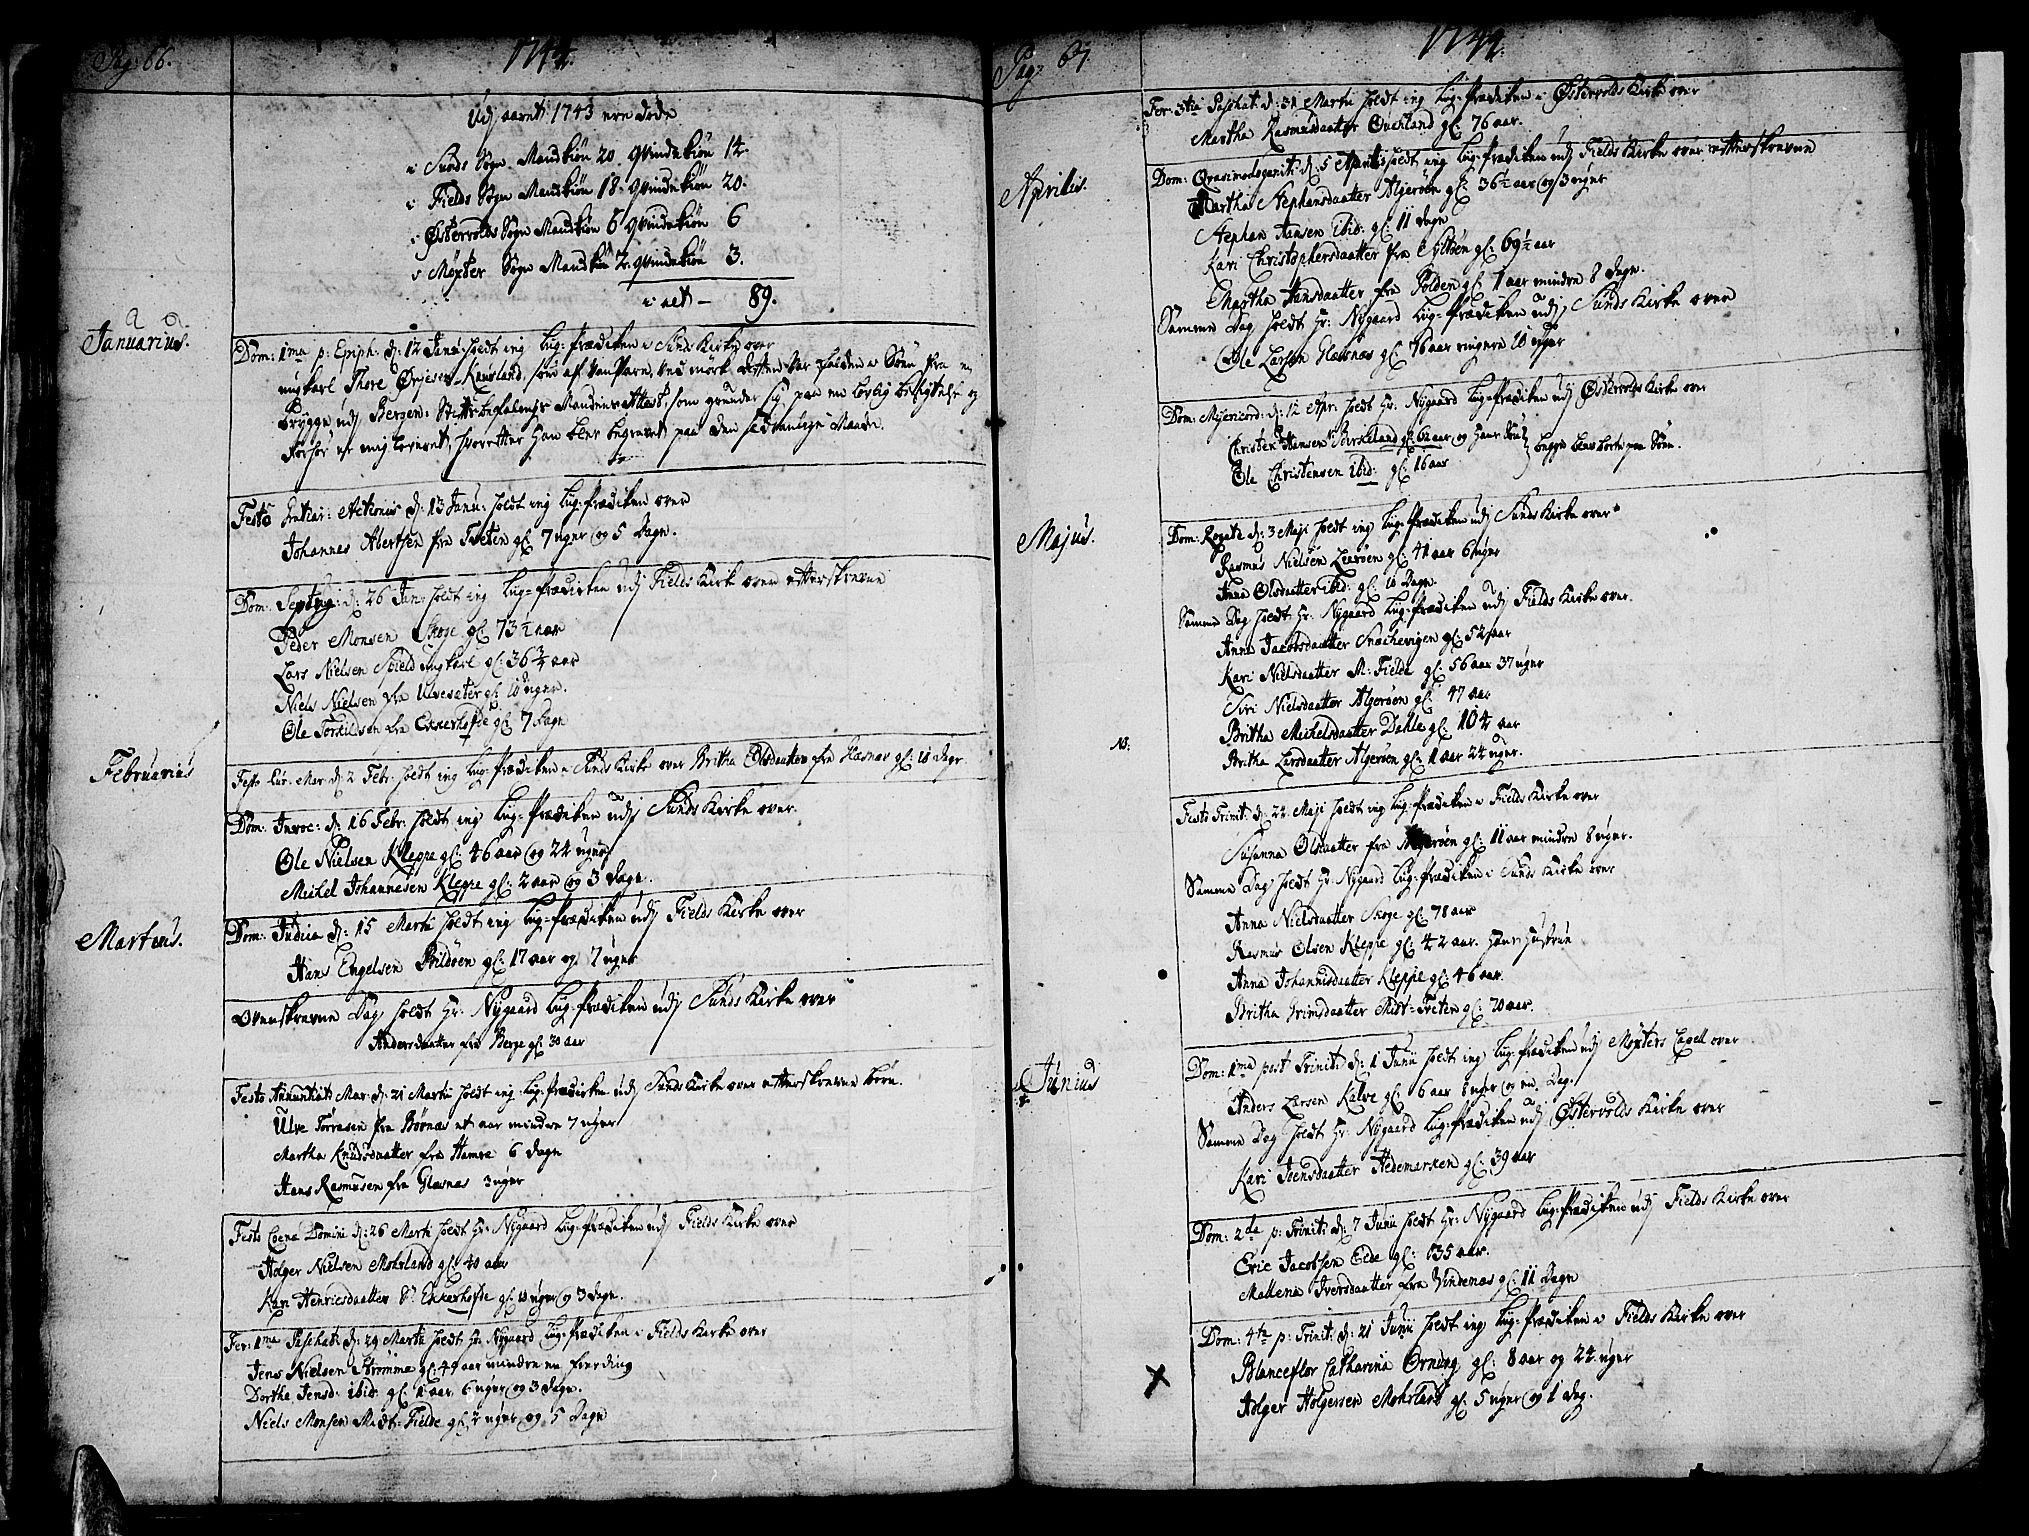 Pag: 66.
1744.
Udj aaret 1743 ere døde
i Sunds Sogn Mandkiøn 20 Qvindekiøn 14
i Fields Sogn Mandkiøn 18 Qvindekiøn 20.
i Østervolds Sogn Mandkiøn 6 Qvindekiøn 6
i Møxter Sogn Mandkiøn 2 Qvindekiøn 3.
i alt - 89.
Januarius.
Dom: 1ma p: Epiph: d: 12 Janu: holdt ieg Lig-Prædiken i Sunds Kirke over
ungkarl Thore Ørjesen Kausland, som af Vanvare, ved mørk Natten var falden i Søen fra en
Brygge udj Bergen: Stiftsbefalings Mandens Attest, som grunder sig paa en lovlig besigtelse og
Forhør er mig leveret, hvorefter han blev begravet paa den sædvanlige Maade.
Festo Initiat: Actionis d: 13 Janu: holdt ieg Lig-Prædiken over
Johannes Abertsen fra Tveten gl: 7 uger og 5 Dage.
Dom: Septuag: d: 26 Jan: holdt ieg Lig-Prædiken udj Fields Kirke over efterskrevne
Peder Monsen Skoge gl: 73½ aar
Lars Nielsen Spield ungkarl gl: 36¾ aar
Niels Nielsen fra Ulvesæter gl: 10 uger.
Ole Torkildsen fra Ekkerhofde gl: 7 Dage
Februarius
Festo Pur: Mar: d: 2 Febr: holdt ieg Lig-Prædiken i Sunds Kirke over Britha Olsdaatter fra Glæsnæs gl: 10 Dage.
Dom: Invoc: d: 16 Febr: holdt ieg Lig-Prædiken udj Sunds Kirke over.
Ole Nielsen Kleppe gl: 46 aar og 24 uger
Michel Johannesen Kleppe gl: 2 aar og 3 Dage.
Martius.
Dom: Judica d: 15 Martii holdt ieg Lig-Prædiken udj Fields Kirke over
Hans Engelsen Bildøen gl: 17 aar og 7 uger
Ovenskrevne Dag holdt Hr: Nygaard Lig-Prædiken udj Sunds Kirke over
Andersdaatter fra Berge gl: 30 aar
Festo Annuntiat: Mar: d: 21 Martii holdt ieg Lig-Prædiken udj Sunds Kirke over efterskrevne børn.
Ulve Torresen fra Børnæs et aar mindre 7 uger
Martha Knudsdaatter fra Hamre 6 Dage
Hans Rasmusen fra Glæsnæs 3 uger
Festo Coena Domini d: 26 Martii holdt Hr: Nygaard Lig-Prædiken udj Fields Kirke over
Holger Nielsen Mohrland gl: 40 aar
Kari Henriesdaatter Ekkerhofde gl: 10 uger og 3 Dage.
Fer: 1ma Paschat: d: 29 Martii holdt Hr Nygaard Lig-Prædiken i Fields Kirke over
Jens Nielsen Strømme gl: 49 aar mindre en fierding
Dortha Jensd: ibid: gl: 1 aar 6 uger og 3 Dage.
Niels Monsen Midt-Fielde gl: 2 uger og 5 Dage
Pag: 67
1744.
Fer: 3tia Paschat: d: 31 Martii holdt ieg Lig-Prædiken i Østervolds Kirke over
Martha Rasmusdaatter Qvehland gl: 76 aar.
Aprilis.
Dom: Qvasimodogenit: d: 5 Aprilis holdt ieg Lig-Prædiken udj Fields Kirke over efterskrevne
Martha Stephansdaatter Algerøen gl: 36½ aar og 3 uger
Stephan Hansen ibid: gl: 11 Dage
Kari Christophersdaatter fra Syltøen gl: 69½ aar
Martha Hansdaatter fra Polden gl: 1 aar mindre 8 Dage.
Samme Dag holdt Hr: Nygaard Lig-Prædiken udj Sunds Kirke over
Ole Larsen Glæsnæs gl: 76 aar ringere 10 uger
Dom: Misericord: d: 12 Apr: holdt Hr: Nygaard Lig-Prædiken udj Østervolds Kirke over
Christen Hansen Birkeland gl: 62 aar og Hans Søn
Ole Christensen ibid: gl: 16 aar
begge blev borte paa Søen.
Majus.
Dom: Rogate d: 3 Maji holdt ieg Lig-Prædiken udj Sunds Kirke over
Rasmus Nielsen Leerøen gl: 41 aar 6 uger
Anna Olsdaatter ibid: gl: 10 Dage
Samme Dag holdt Hr: Nygaard Lig-Prædiken udj Fields Kirke over.
Anna Jacobsdaatter Snachevigen gl: 52 aar
Kari Nielsdaatter M: Fielde gl: 56 aar 37 uger
Siri Nielsdaatter Algerøen gl: 47 aar
NB:
Britha Michelsdaatter Dahle gl: 104 aar
Britha Larsdaatter Algerøen gl: 1 aar 24 uger.
Festo Trinit: d: 24 Maji holdt ieg Lig-Prædiken i Fields Kirke over
Susanna Olsdaatter fra Algerøen gl: 11 aar mindre 8 uger.
Samme Dag holdt Hr: Nygaard Lig-Prædiken i Sunds Kirke over
Anna Nielsdaatter Skoge gl: 78 aar
Rasmus Olsen Kleppe gl: 42 aar. Hans Hustrue
Anna Johannisdaatter Kleppe gl: 46 aar.
Britha Grimsdaatter Midt-Tveten gl: 70 aar.
Junius
Dom: 1ma post Trinit: d: 1 Junii holdt ieg Lig-Prædiken udj Møxters Capell over
Anders Larsen Kalve gl: 6 aar 8 uger og en Dag.
Samme Dag holdt Hr: Nygaard Lig-Prædiken udj Østervolds Kirke over
Kari Joensdaatter Hedemarken gl: 39 aar
Dom: 2da p: Trinit: d: 7 Junii holdt Hr: Nygaard Lig-Prædiken udj Fields Kirke over
Eric Jacobsen Eide gl: 35 aar.
Mallena Iversdaatter fra Vindenæs gl: 11 Dage
Dom: 4ta p: Trinit: d: 21 Junii holdt ieg Lig-Prædiken i Fields Kirke over
Blanceflor Catharina Orning gl: 8 aar og 24 uger
Holger Holgersen Mohrland gl: 5 uger og 1 Dag.